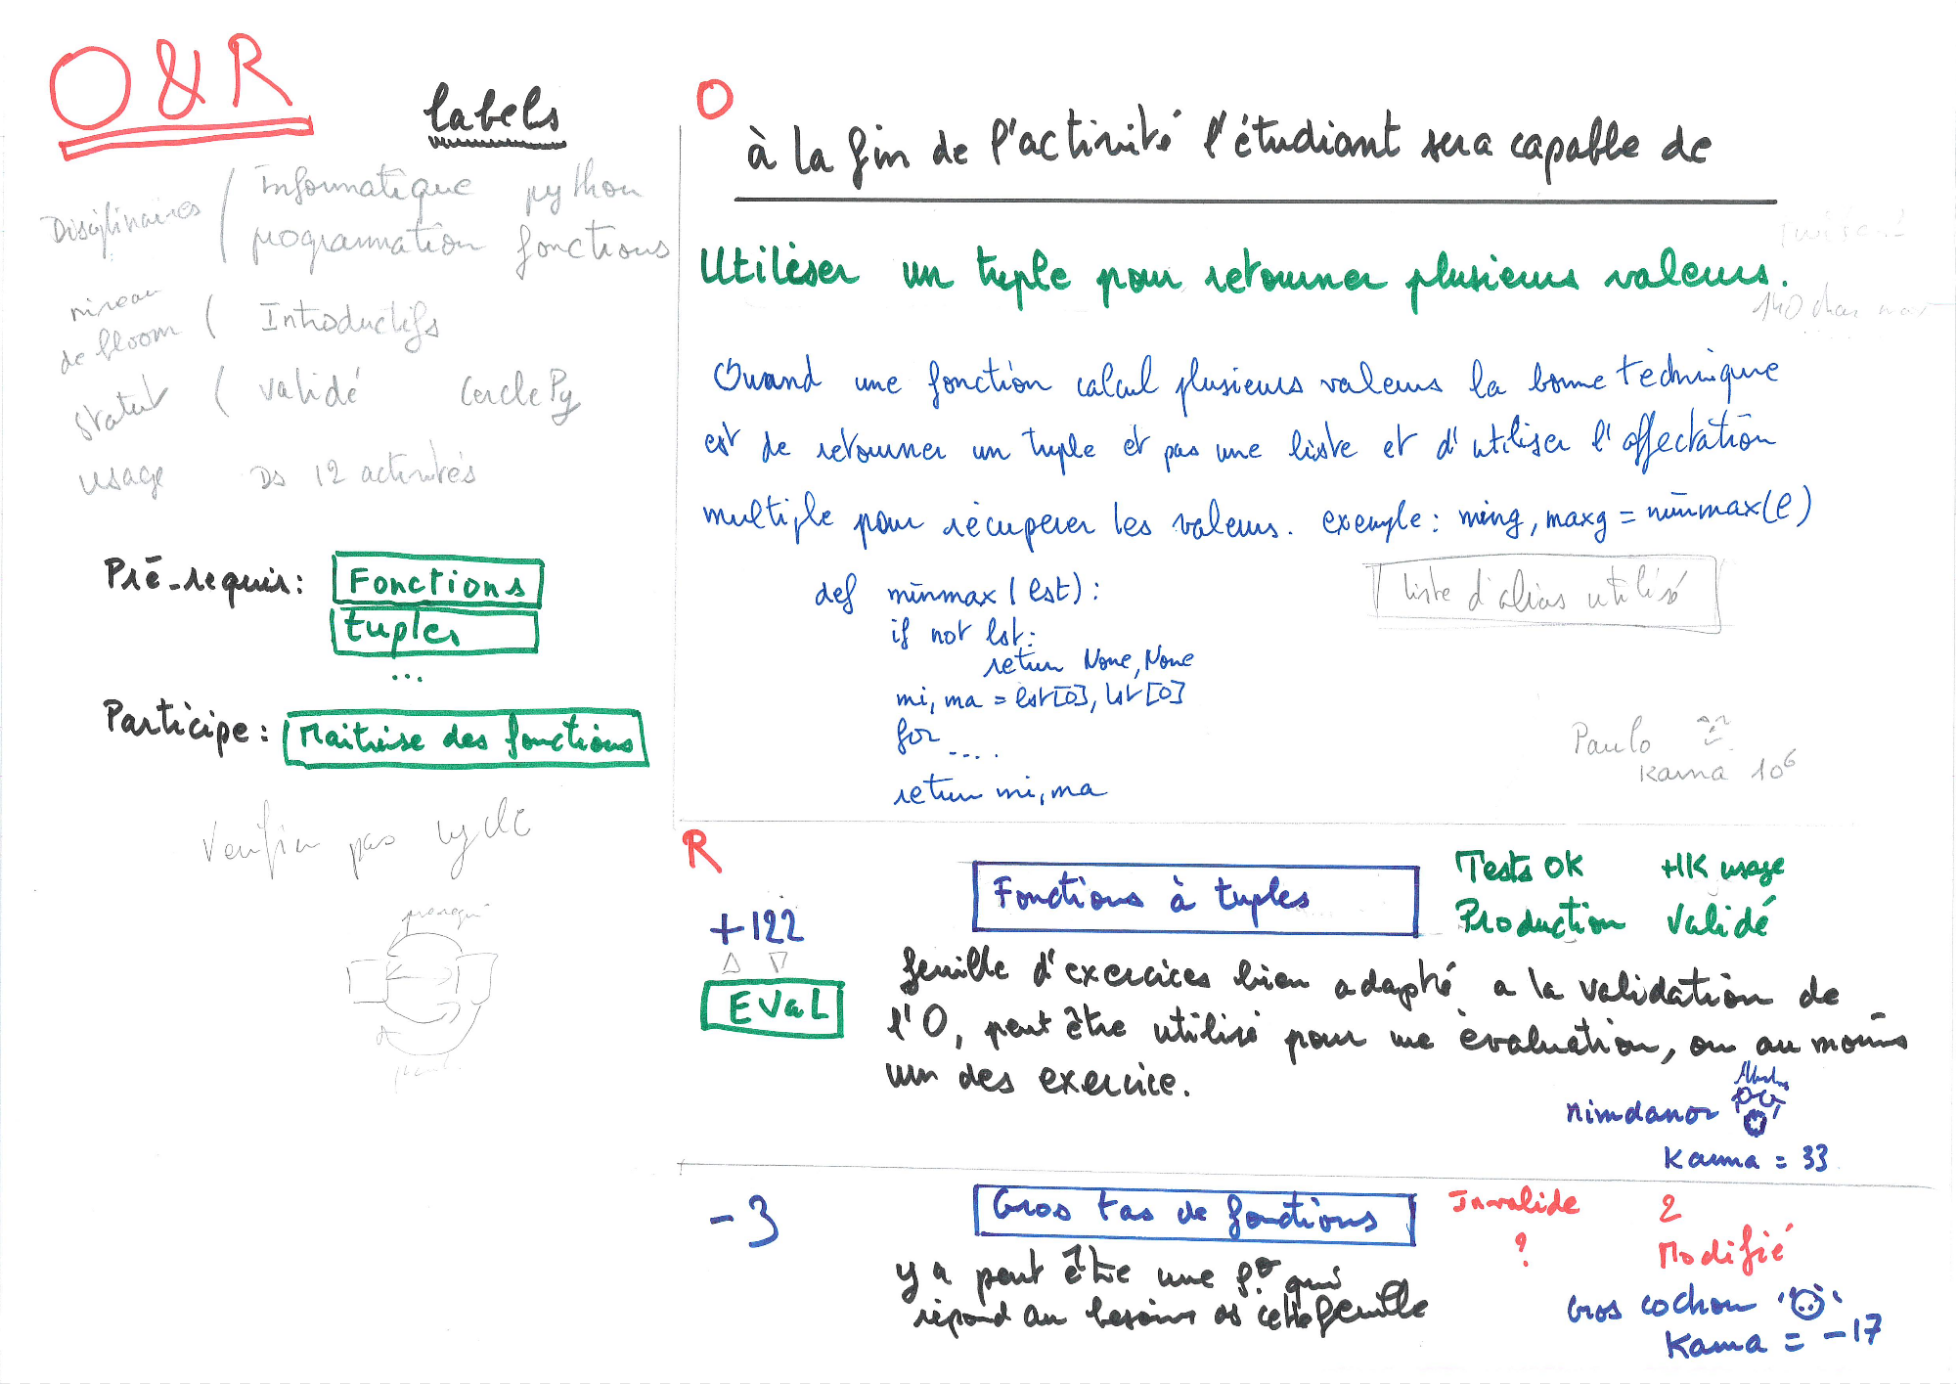 O & R
labels
Disciplinaires ( Informatique python
programmation fonctions
niveau
de bloom ( Introductifs
statut ( validé CerclePy
usage Ds 12 activités
Pré-requis: Fonctions
tuples
...
Participe: Maitrise des fonctions
Verifier pas cycle
O
à la fin de l'activité l'étudiant sera capable de
Utiliser un tuple pour retourner plusieurs valeurs.
140 char max
Quand une fonction calcul plusieurs valeurs la bonne technique
est de retourner un tuple et pas une liste et d'utiliser l'affectation
multiple pour récuperer les valeurs. exemple: ming, maxg = minmax(l)
def minmax (lst):
if not lst:
return None, None
mi, ma = lst[0], lst[0]
for ....
return mi, ma
liste d'alias utilisé
Paulo
Karma 10⁶
R
+122
EVaL
Fonctions à tuples
Tests OK +1K usage
Production Validé
feuille d'exercices bien adapté a la validation de
l'O, peut être utilisé pour une évaluation, ou au moins
un des exercice.
nimdanor
Karma = 33
-3
Gros tas de fonctions
Invalide 2
? Modifié
y a peut être une f° qui
répond au besoin ds cette feuille
Gros cochon
Karma = -17